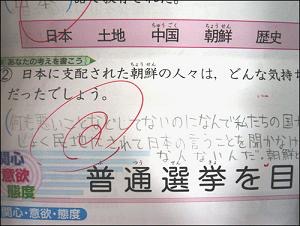 日本 土地 中国 朝鮮 歴史
ちゅうごく ちょうせん れきし
あなたの考えを書こう
② 日本に支配された朝鮮の人々は、どんな気持ち
だったでしょう。
何も悪いことなどしてないのになんで私たちの国
民 されて日本の言うことを聞かなけ
なんないんだ。朝鮮
関心
意欲
態度
ふ つう せん きょ
普通選挙を目
関心・意欲・態度